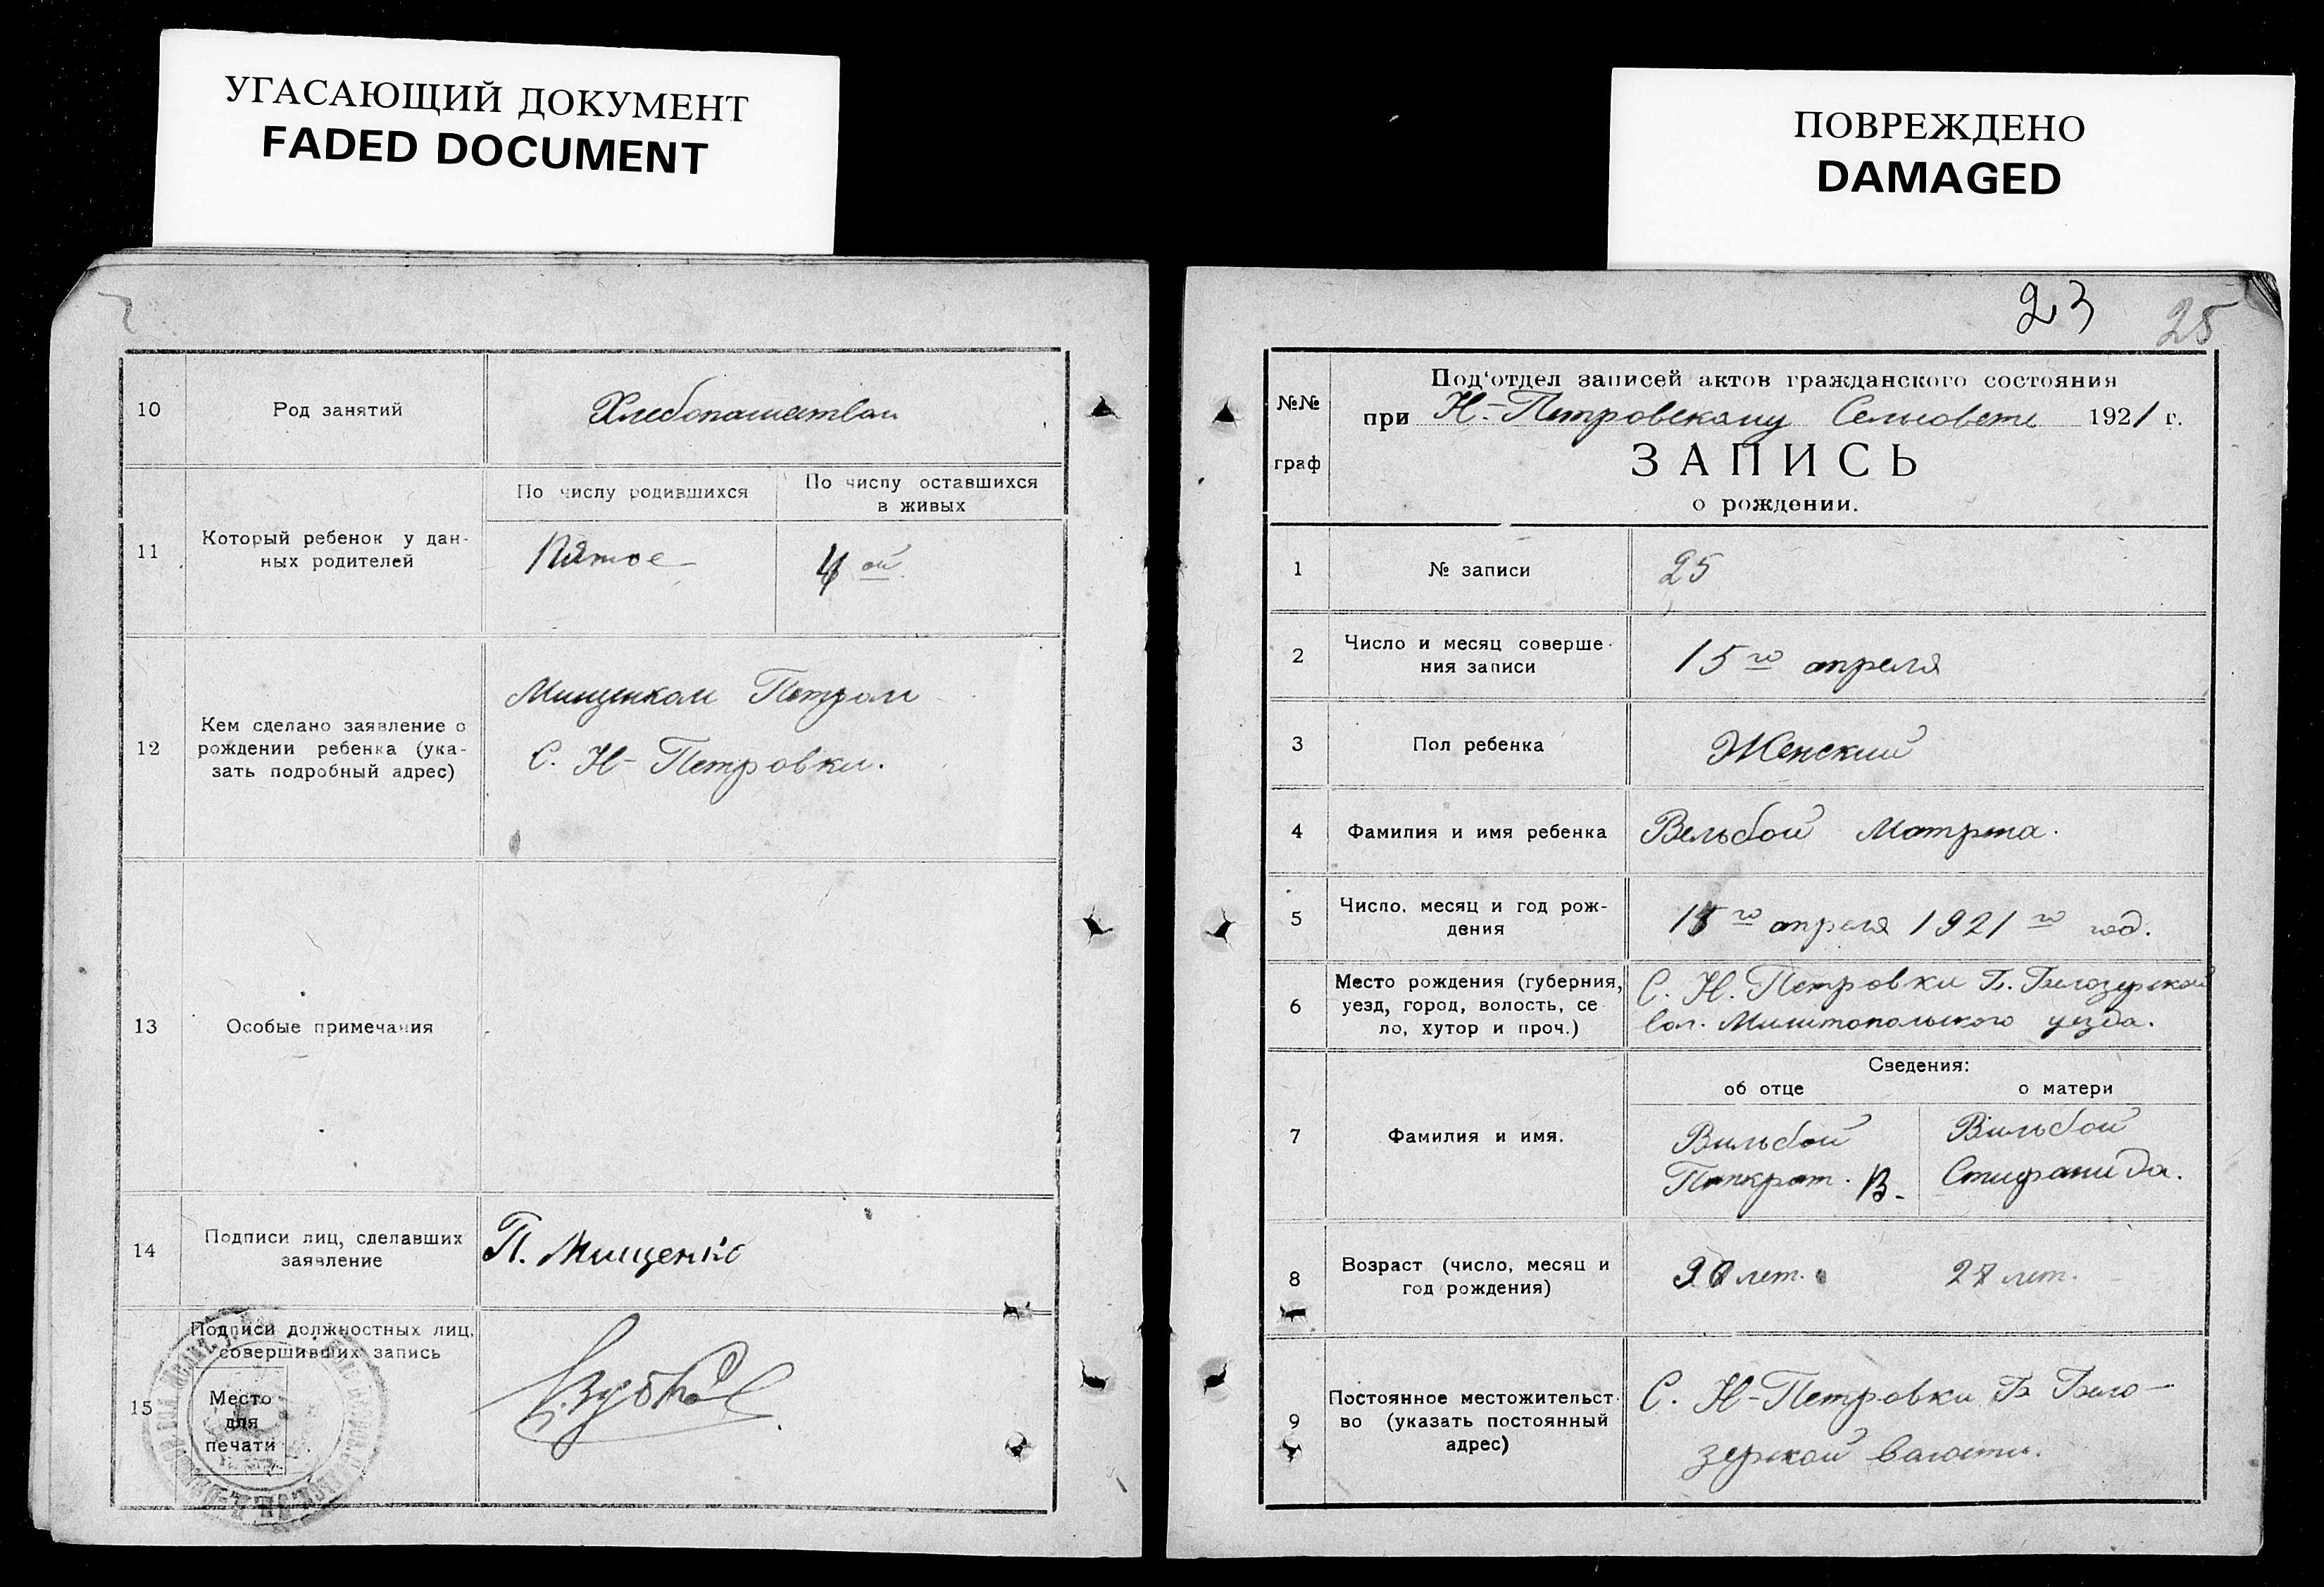 УГАСАЮЩИЙ ДОКУМЕНТ
FADED DOCUMENT
ПОВРЕЖДЕНО
DAMAGED
10
Род занятий
Хлебопашатвом
11
Который ребенок у дан-
ных родителей
По числу родившихся
По числу оставшихся
в живых
Пятое
4 ой
12
Кем сделано заявление о
рождении ребенка (ука-
зать подробный адрес)
Мищенком Петром
С. Н-Петровки.
13
Особые примечания
14
Подписи лиц, сделавших
заявление
П. Мищенко
15
Подписи должностных лиц,
совершивших запись
Место
для
печати
23
25
№№
граф
Под'отдел записей актов гражданского состояния
при Н-Петровскому Сельсовете 1921 г.
ЗАПИСЬ
о рождении.
1
№ записи
25
2
Число и месяц соверше-
ния записи
15го апреля
3
Пол ребенка
Женский
4
Фамилия и имя ребенка
Вельбой Мотрина.
5
Число, месяц и год рож-
дения
го апреля 1921го год.
6
Место рождения (губерния,
уезд, город, волость, се
ло, хутор и проч.)
С. Н. Петровки Б. Билозерской
вол. Милитопольского уезда.
Сведения:
об отце
о матери
7
Фамилия и имя.
Вильбой
Панкрат. В.
Вильбой
Стифанида.
8
Возраст (число, месяц и
год рождения)
лет.
лет.
9
Постоянное местожительст-
во (указать постоянный
адрес)
С. Н-Петровки Б Било-
зерской волости.